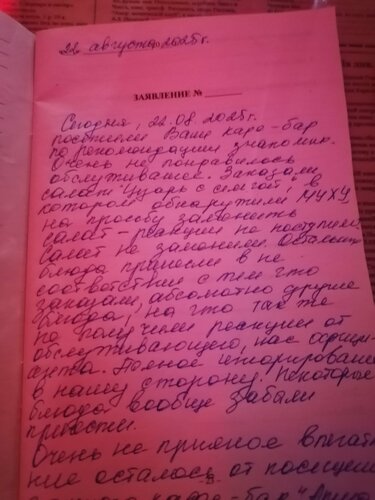 22 августа 2025г.
ЗАЯВЛЕНИЕ №
Сегодня, 22.08.2025г.
посетили Ваше каре-бар
по рекомендации знакомых.
Очень не понравилось
обслуживание. Заказали
салат "Цезарь с семгой", в
котором обнаружили МУХУ,
на просьбу заменить
салат - реакции не поступило.
Салат не заменили. Остальные
блюда принесли в не
соответствие с тем что
заказали, абсолютно другие
блюда, на что так же
не получили реакции от
обслуживающего нас официанта
Полное игнорирование
в нашу сторону. Некоторые
блюда вообще забыли
принести.
Очень не приятное впечатле
ние осталось от посещения
кафе-бар